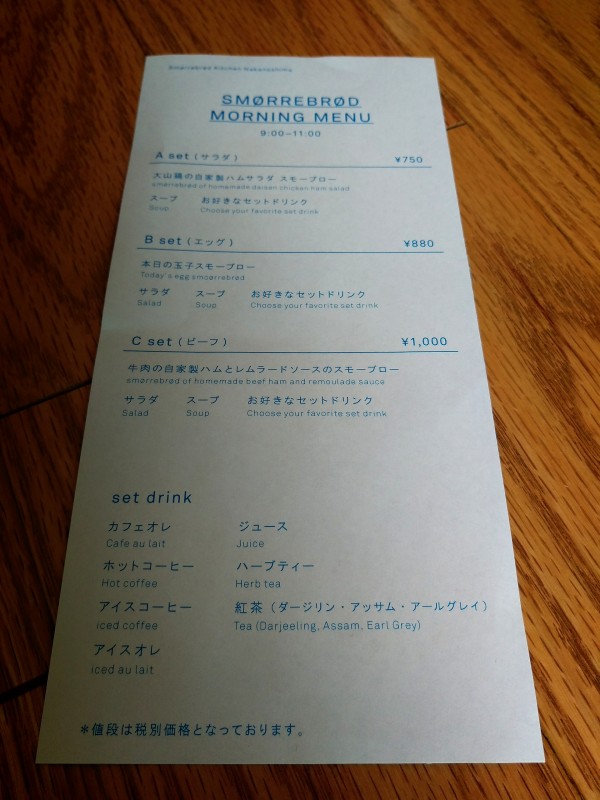 Smørrebrød Kitchen Nakanoshima
SMØRREBRØD
MORNING MENU
9:00–11:00
A set (サラダ) ¥750
大山鶏の自家製ハムサラダ スモーブロー
smørrebrød of homemade daisen chicken ham salad
スープ お好きなセットドリンク
Soup Choose your favorite set drink
B set (エッグ) ¥880
本日の玉子スモーブロー
Today's egg smoørrebrød
サラダ スープ お好きなセットドリンク
Salad Soup Choose your favorite set drink
C set (ビーフ) ¥1,000
牛肉の自家製ハムとレムラードソースのスモーブロー
smørrebrød of homemade beef ham and remoulade sauce
サラダ スープ お好きなセットドリンク
Salad Soup Choose your favorite set drink
set drink
カフェオレ ジュース
Cafe au lait Juice
ホットコーヒー ハーブティー
Hot coffee Herb tea
アイスコーヒー 紅茶（ダージリン・アッサム・アールグレイ）
iced coffee Tea (Darjeeling, Assam, Earl Grey)
アイスオレ
iced au lait
＊値段は税別価格となっております。